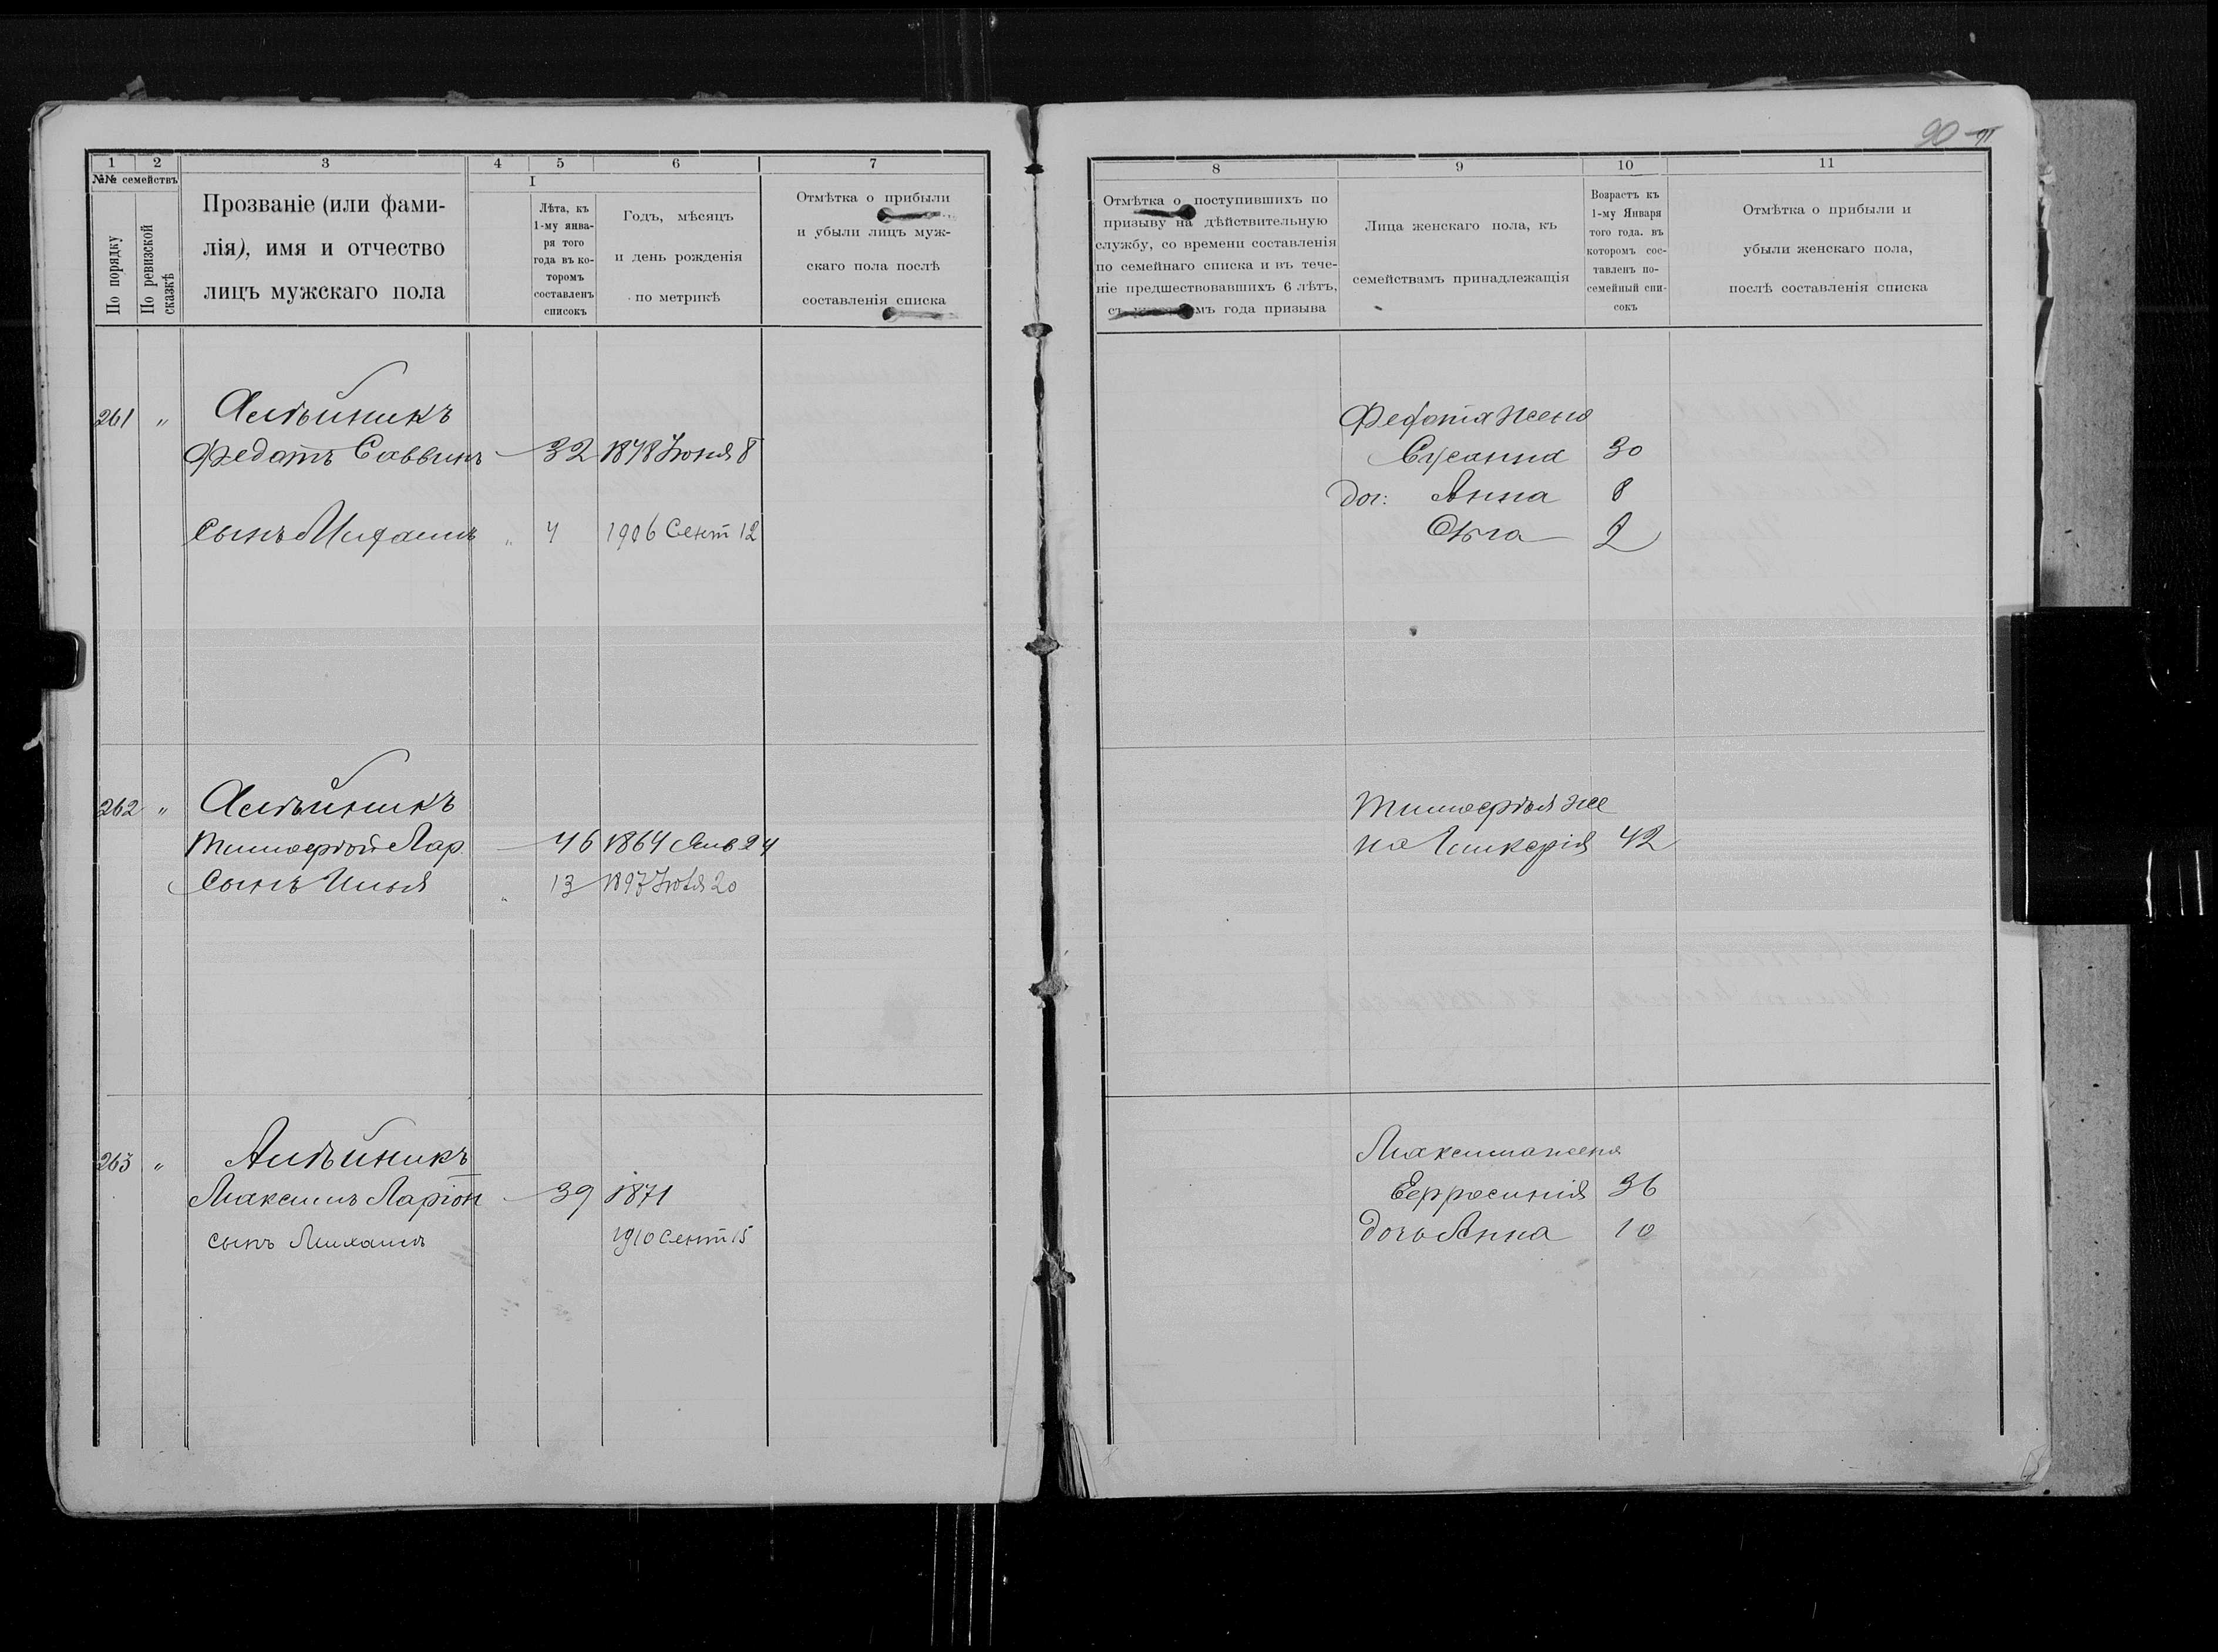 90
1 2 3 4 5 6 7
№№ семействъ
По порядку
По ревизской сказкѣ
Прозваніе (или фами-
лія), имя и отчество
лицъ мужскаго пола
I
Лѣта, къ
1-му янва-
ря того
года въ ко-
торомъ
составленъ
списокъ
Годъ, мѣсяцъ
и день рожденія
по метрикѣ
Отмѣтка о прибыли
и убыли лицъ муж-
скаго пола послѣ
составленія списка
261 " Алѣйникъ
Федотъ Саввинъ 32 1878 Іюня 8
сынъ 4 1906 Сент 12
262 " Алѣйникъ
Тимофѣй Лар. 46 1864 Янв 24
Сынъ Илья " 13 1897 Іюля 20
263 " Алѣйникъ
Максимъ Ларіон 39 1871
сынъ Михаилъ 1910 Сент 15
8 9 10 11
Отмѣтка о поступившихъ по
призыву на дѣйствительную
службу, со времени составленія
по семейнаго списка и въ тече-
ніе предшествовавшихъ 6 лѣтъ,
мъ года призыва
Лица женскаго пола, къ
семействамъ принадлежащія
Возрастъ къ
1-му Января
того года. въ
которомъ сос-
тавленъ по-
семейный спи-
сокъ
Отмѣтка о прибыли и
убыли женскаго пола,
послѣ составленія списка
Федота жена
Сусанна 30
Доч: Анна 8
Ольга 2
Тимофѣя же
на Гликерія 42
Максима жена
Ефросинія 36
дочь Анна 10